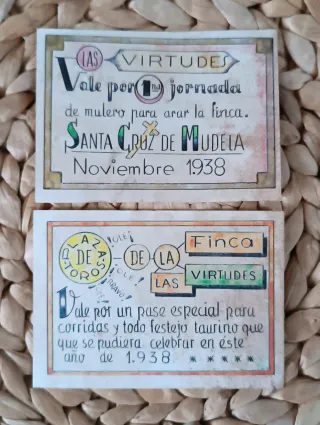 LAS VIRTUDES
Vale por 1 jornada
de mulero para arar la finca.
SANTA CRUZ DE MUDELA
Noviembre 1.938
PLAZA DE TOROS
¡OLE!
¡OLE!
¡BRAVO!
DE LA
Finca
LAS VIRTUDES
Vale por un pase especial para
corridas y todo festejo taurino que
que se pudiera celebrar en éste
año de 1.938